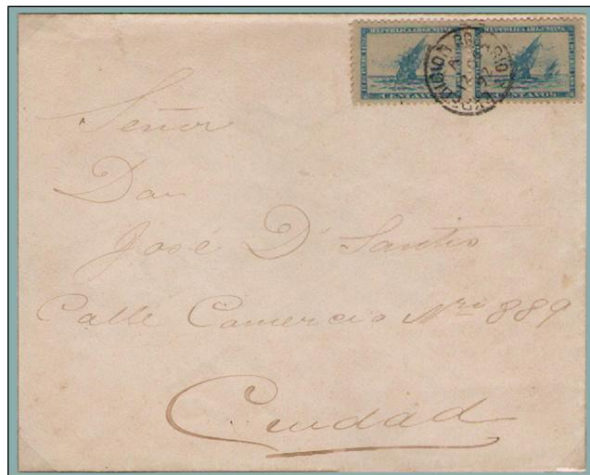 REPUBLICA ARGENTINA REPUBLICA ARGENTINA
CENTAVOS CENTAVOS
Señor
Don
José D'Santis
Calle Comercio Nro 889
Ciudad